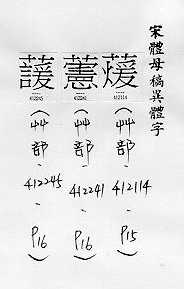 宋體母稿異體字
蕿
412114
(艸部-412114-P15)
藼
412241
(艸部-412241-P16)
蘐
412245
(艸部-412245-P16)